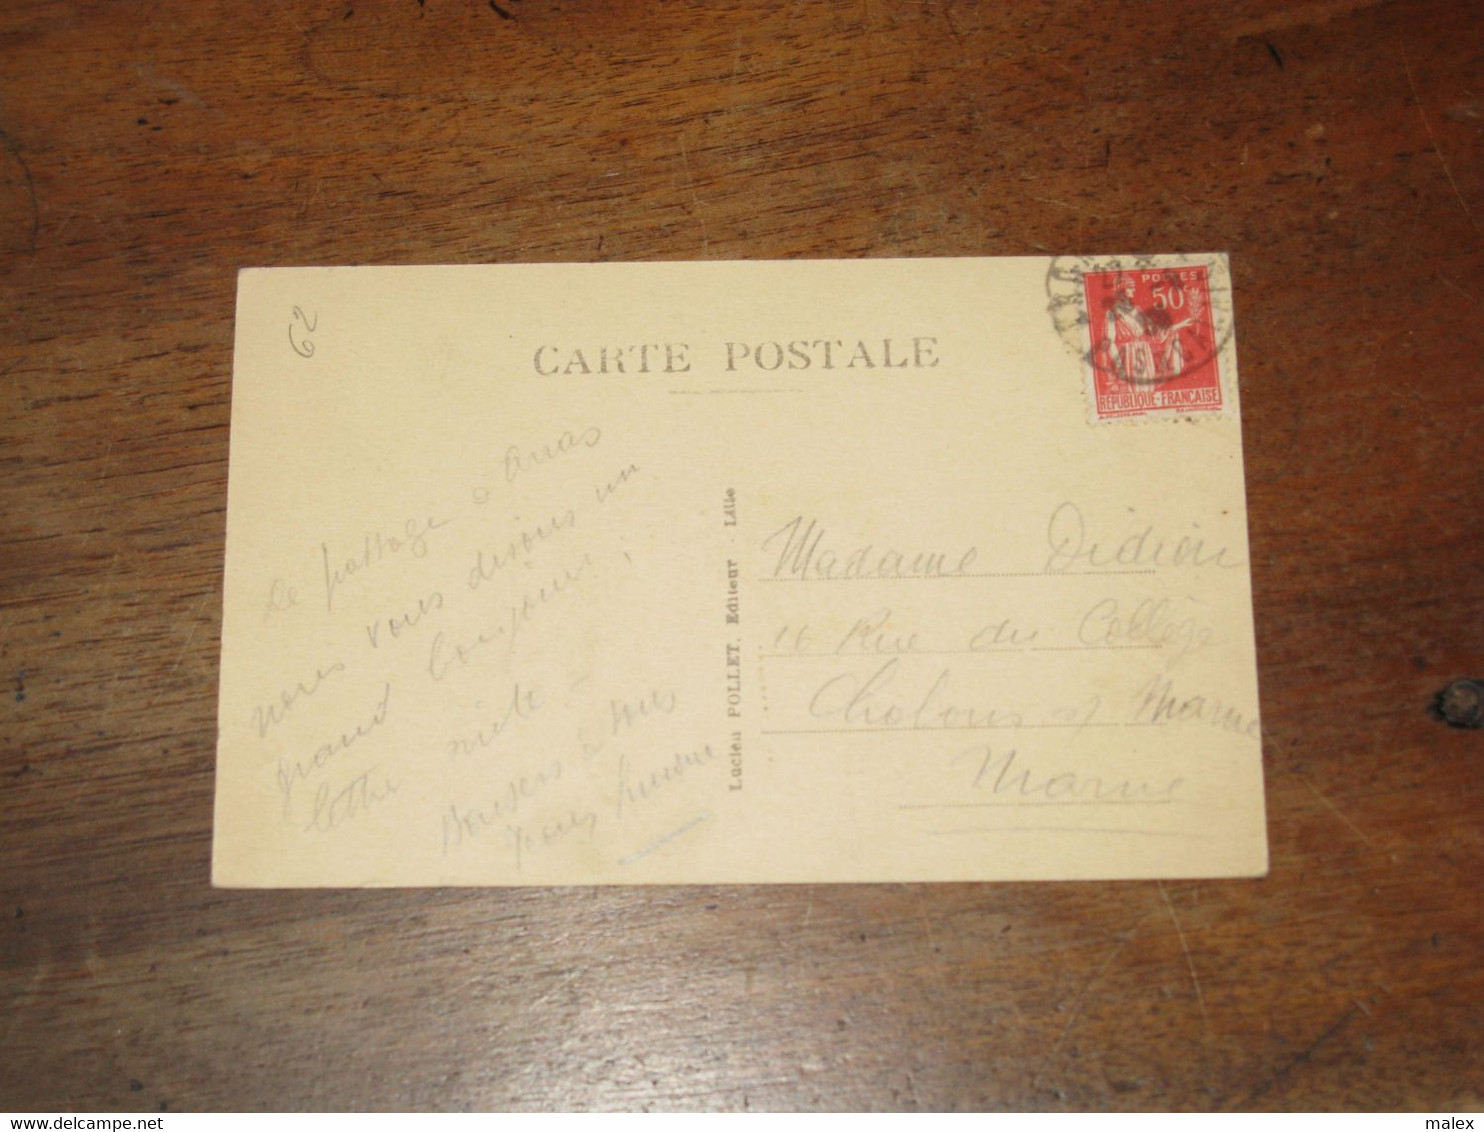 62
CARTE POSTALE
POSTES
50c
RÉPUBLIQUE-FRANÇAISE
De passage à Arras
nous vous disons un
grand bonjour ;
lettre suite -
Baisers à tous
Simone
Lucien POLLET, Editeur - Lille
Madame Didion
16 Rue du Collège
Chalons s/ Marne
Marne
www.delcampe.net
malex